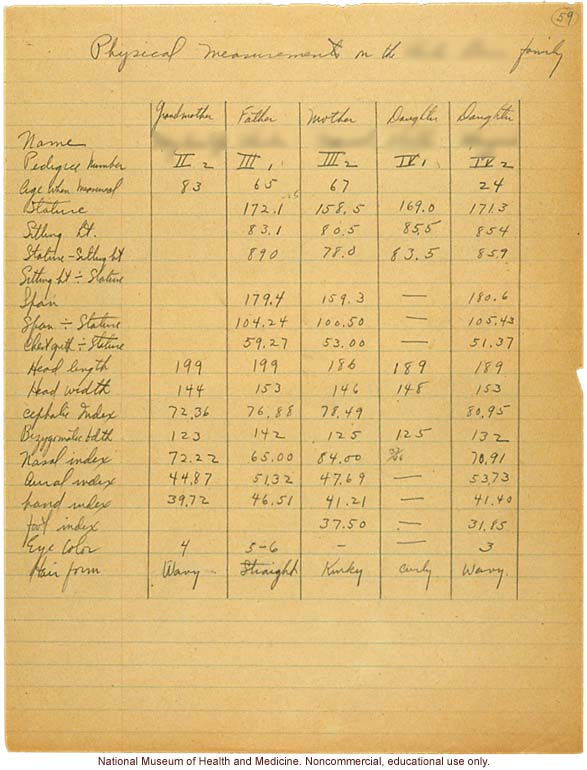 59
Physical measurements on the family
Grandmother Father Mother Daughter Daughter
Name
Pedigree Number II 2 III 1 III 2 IV 1 IV 2
Age when measured 83 65 67 24
Stature 172.1 158.5 169.0 171.3
Sitting ht. 83.1 80.5 85.5 854
Stature-Sitting ht 890 78.0 83.5 859
Sitting ht ÷ Stature
Span 179.4 159.3 — 180.6
Span ÷ Stature 104.24 100.50 — 105.43
Chest girth ÷ Stature 59.27 53.00 — 51.37
Head length 199 199 186 189 189
Head width 144 153 146 148 153
Cephalic Index 72.36 76.88 78.49 80.95
Bizygomatic bdth 123 142 125 125 132
Nasal index 72.22 65.00 84.00 70.91
Aural index 44.87 51.32 47.69 — 53.73
hand index 39.72 46.51 41.21 — 41.40
foot index 37.50 — 31.85
Eye Color 4 5-6 - — 3
Hair form Wavy Straight Kinky curly Wavy.
National Museum of Health and Medicine. Noncommercial, educational use only.